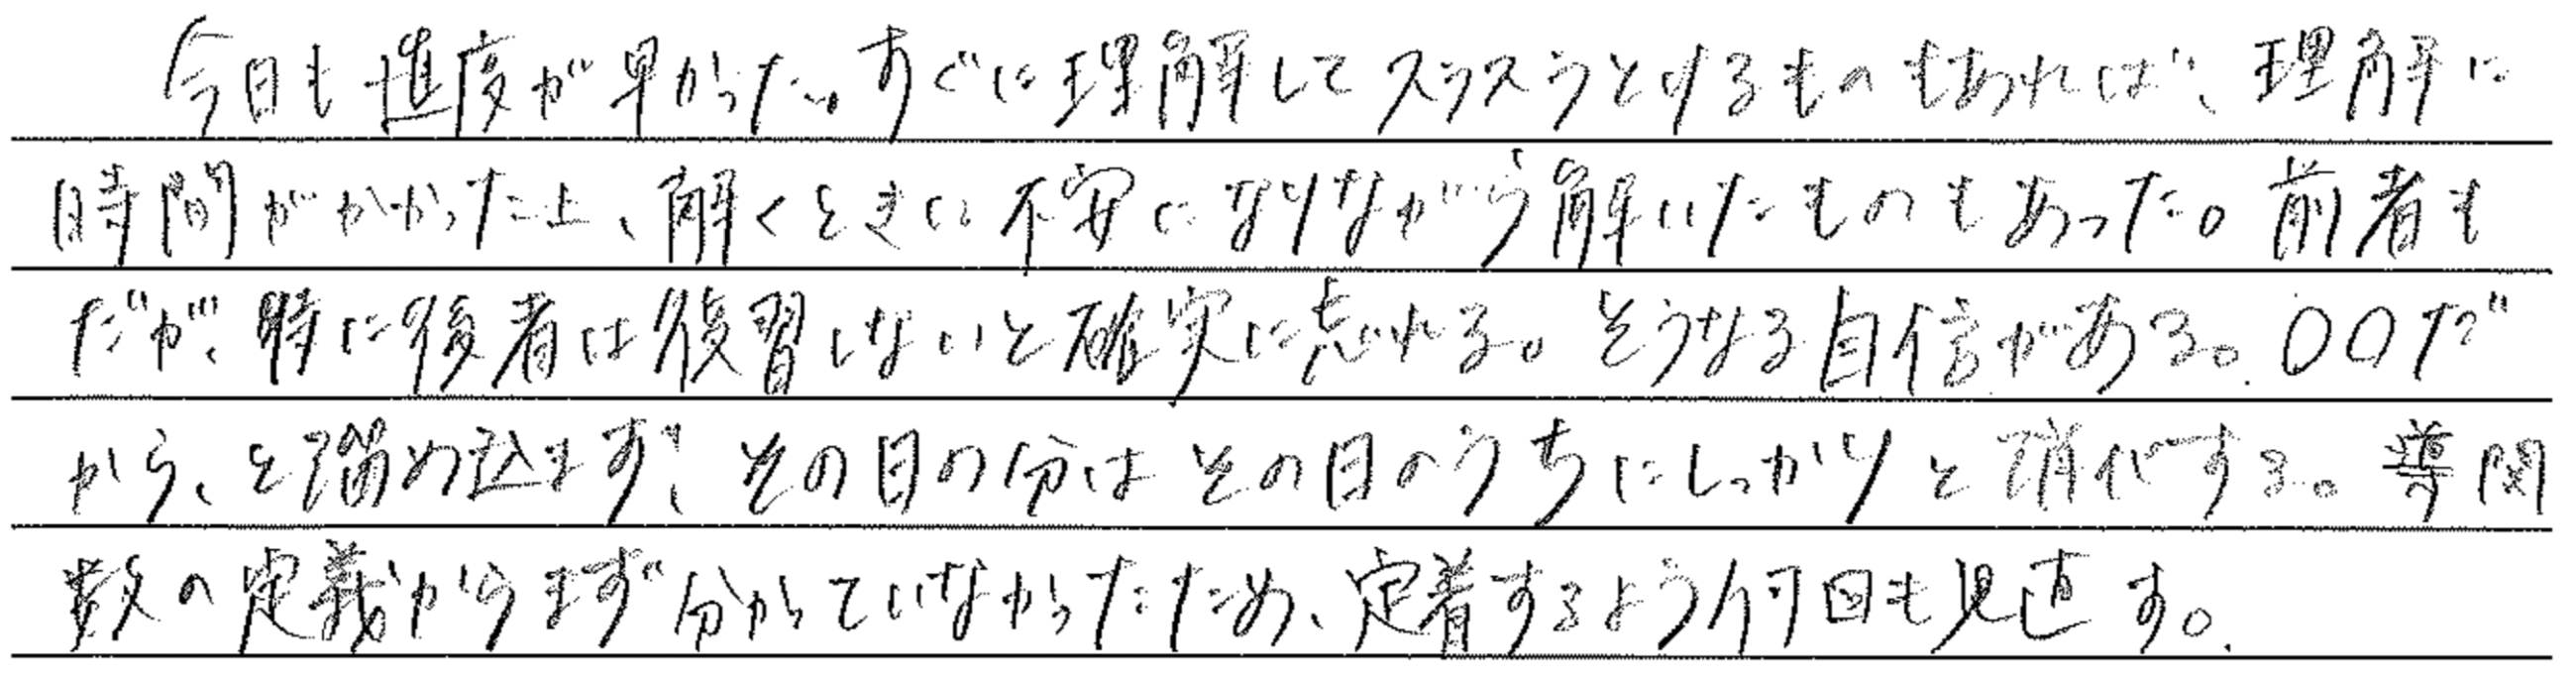 今日も進度が早かった。すぐに理解してスラスラとけるものもあれば、理解に
時間がかかった上、解くときに不安になりながら解いたものもあった。前者も
だが、特に後者は復習しないと確実に忘れる。そうなる自信がある。〇〇だ
から、と溜め込まず、その日の分はその日のうちにしっかりと消化する。導関
数の定義からまず分かっていなかったため、定着するよう何回も見直す。